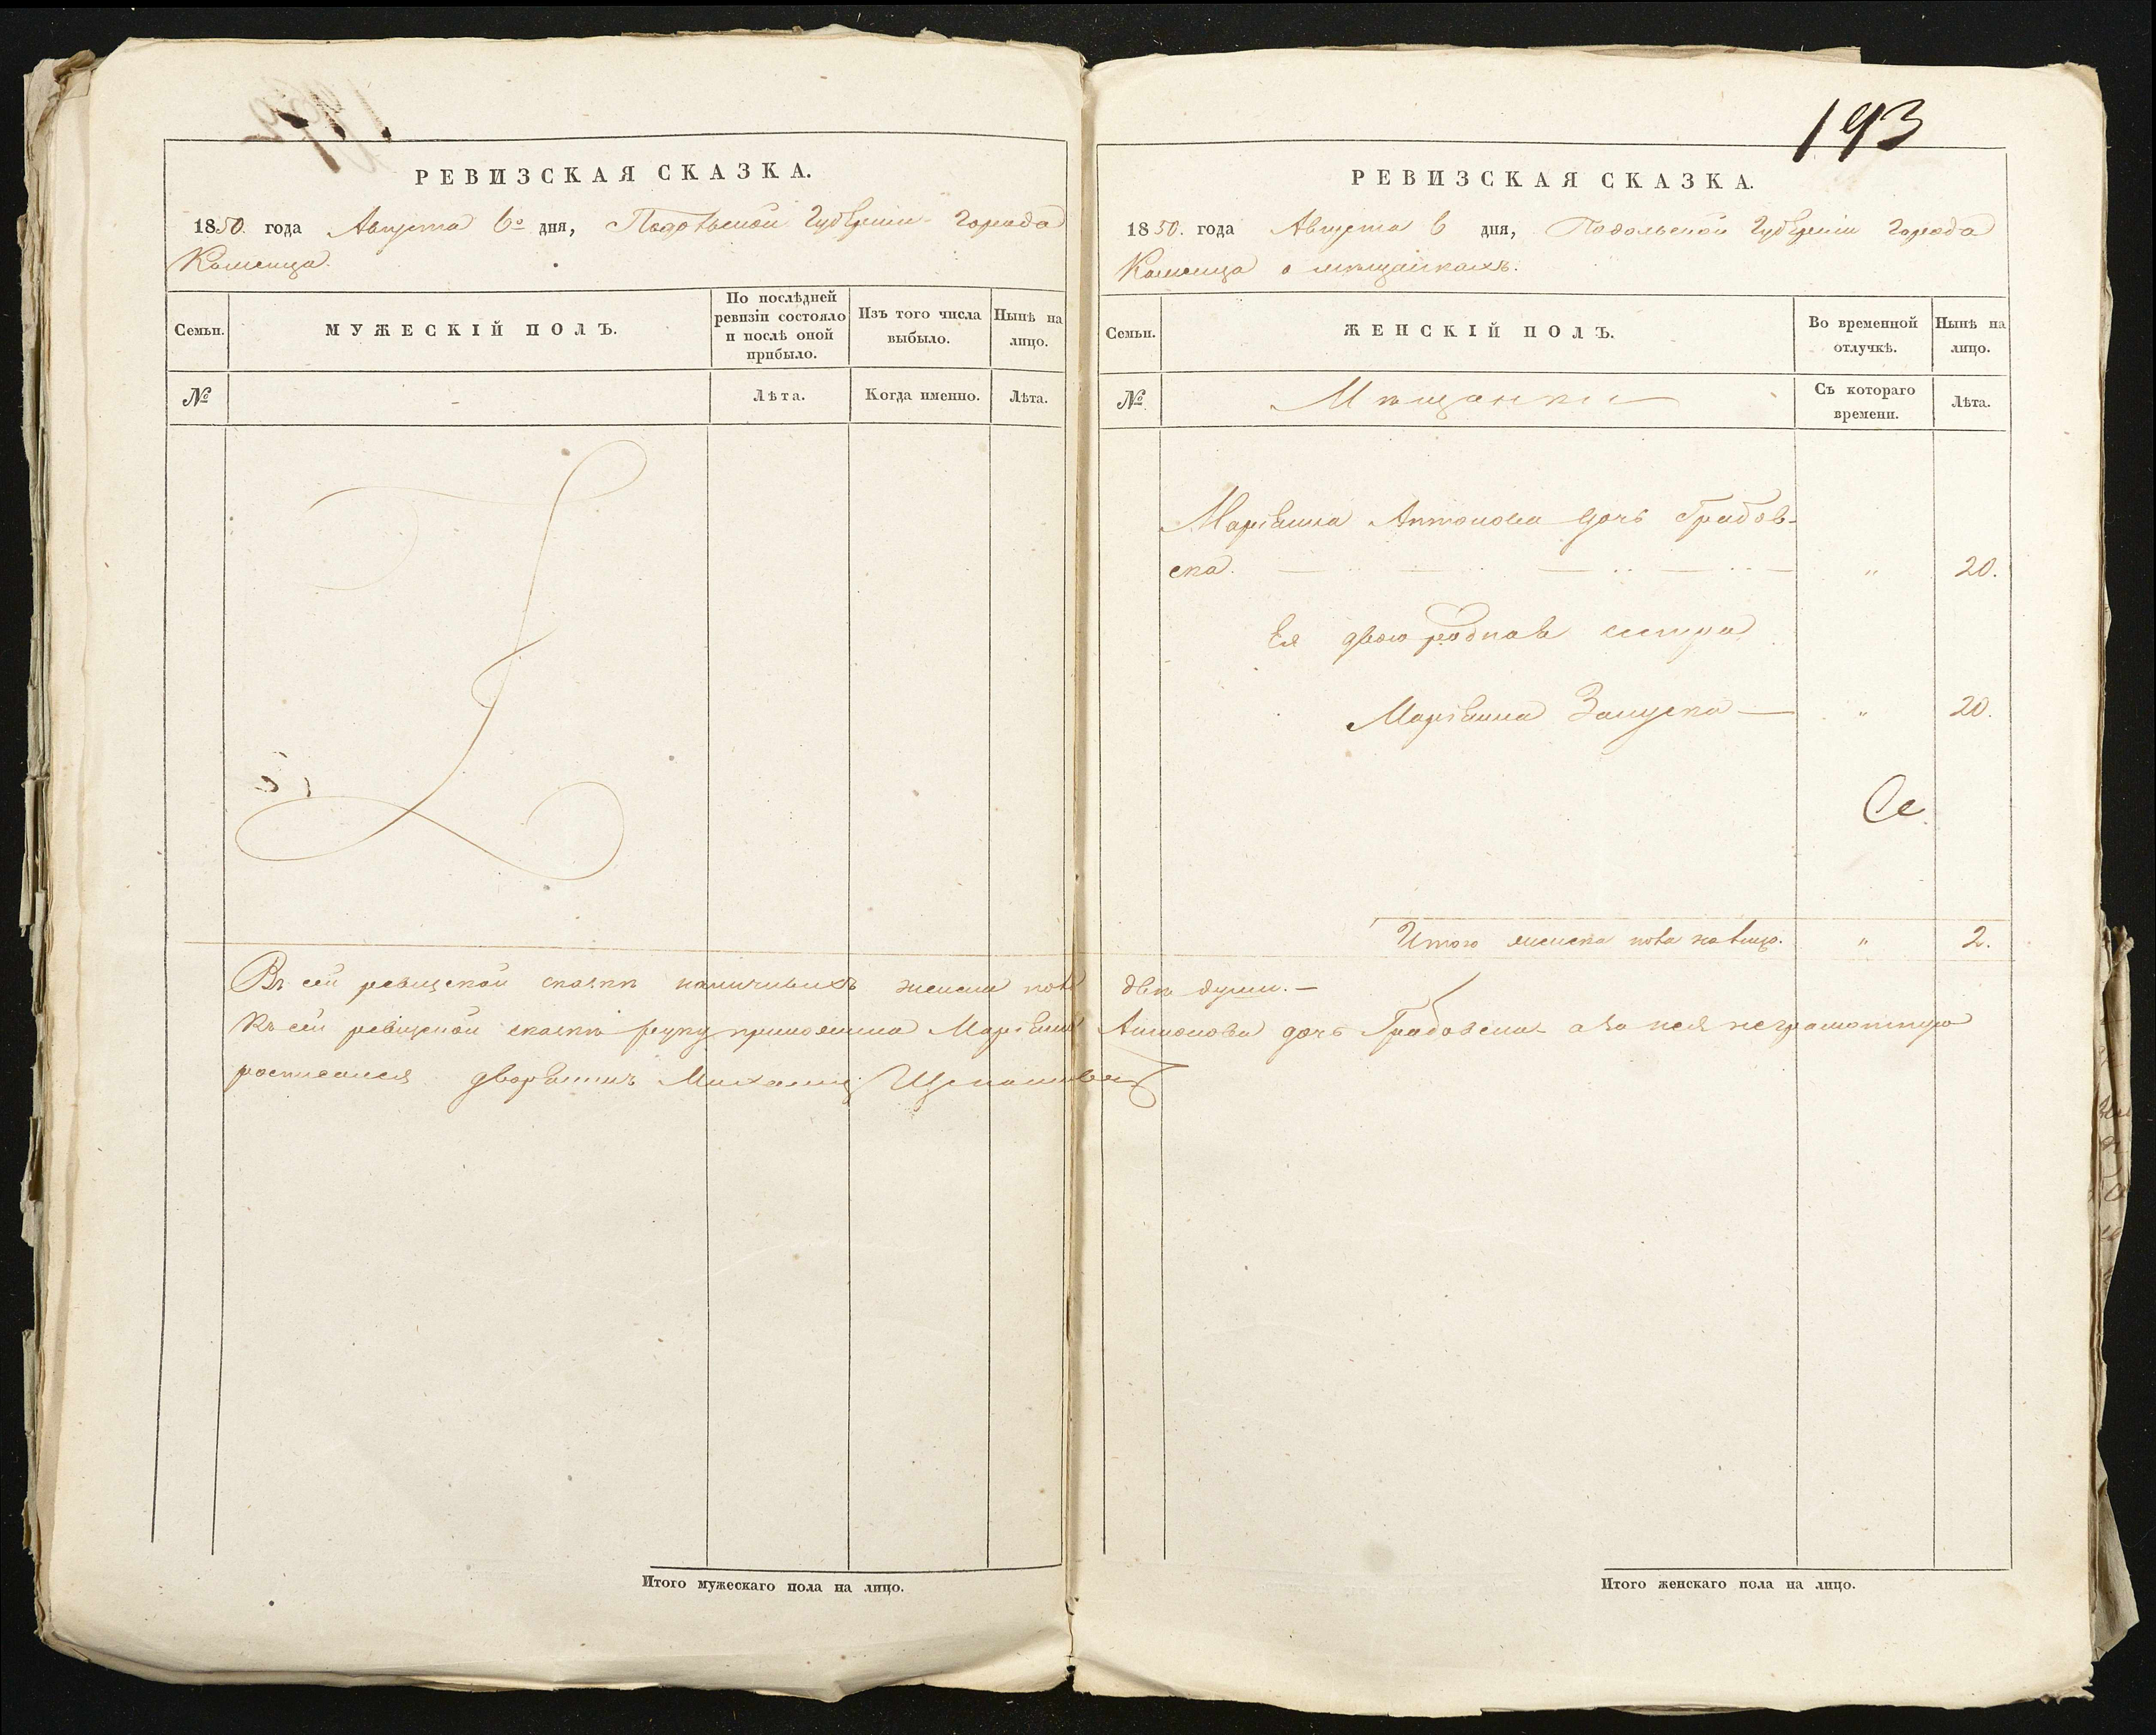 РЕВИЗСКАЯ СКАЗКА.
1850. года Августа 6го дня, Подольской Губерніи Города
Каменца.
Семьи.
МУЖЕСКІЙ ПОЛЪ.
По послѣдней
ревизіи состояло
и послѣ оной
прибыло.
Изъ того числа
выбыло.
Нынѣ на
лицо.
№
Лѣта.
Когда именно.
Лѣта.
Итого мужескаго пола на лицо.
193
РЕВИЗСКАЯ СКАЗКА.
1850. года Августа 6 дня, Подольской Губерніи Города
Каменца о мѣщанкахъ.
Семьи.
ЖЕНСКІЙ ПОЛЪ.
Во временной
отлучкѣ.
Нынѣ на
лицо.
№
Мѣщанки
Съ котораго
времени.
Лѣта.
Маріанна Антонова дочь Грабов-
ска. " 20.
Ея двоюродная сестра
Маріанна " 20.
Итого женска пола на лицо. " 2.
Въ сей ревизской сказкѣ наличныхъ женска пола двѣ души.
Къ сей ревизской сказкѣ руку приложила Маріанна Антонова дочь Грабовска а за нея неграмотную
росписался дворянинъ Михаилъ
Итого женскаго пола на лицо.